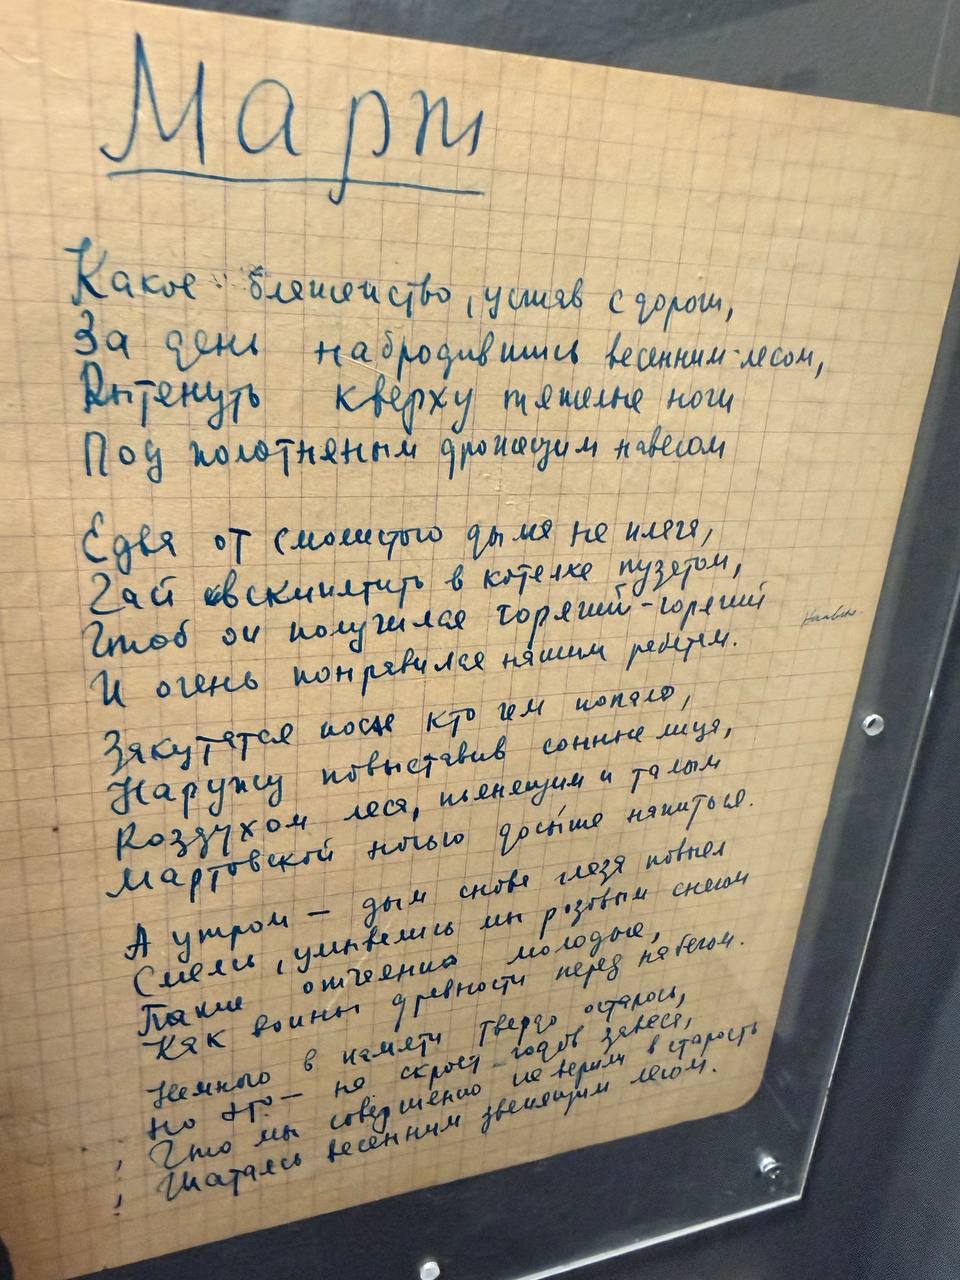 Март
Какое блаженство, устав с дороги,
За день набродившись весенним лесом,
Вытянуть кверху тяжелые ноги
Под полотняным дрожащим навесом
Едва от смолистого дыма не плача,
Чай вскипятить в котелке пузатом,
Чтоб он получился горячий-горячий
И очень понравился нашим ребятам.
Закутаться после кто чем попало,
Наружу повыставив сонные лица,
Воздухом леса, пьянящим и талым
Мартовской ночью досыта напиться.
А утром – дым снова глаза повыел
Смеясь, умывались мы розовым снегом
Такие отчаянно молодые,
Как воины древности перед набегом.
Немного в памяти твердо осталось,
Но это – не скроет годов завеса,
Что мы совершенно не верили в старость
Шатаясь весенним звенящим лесом.